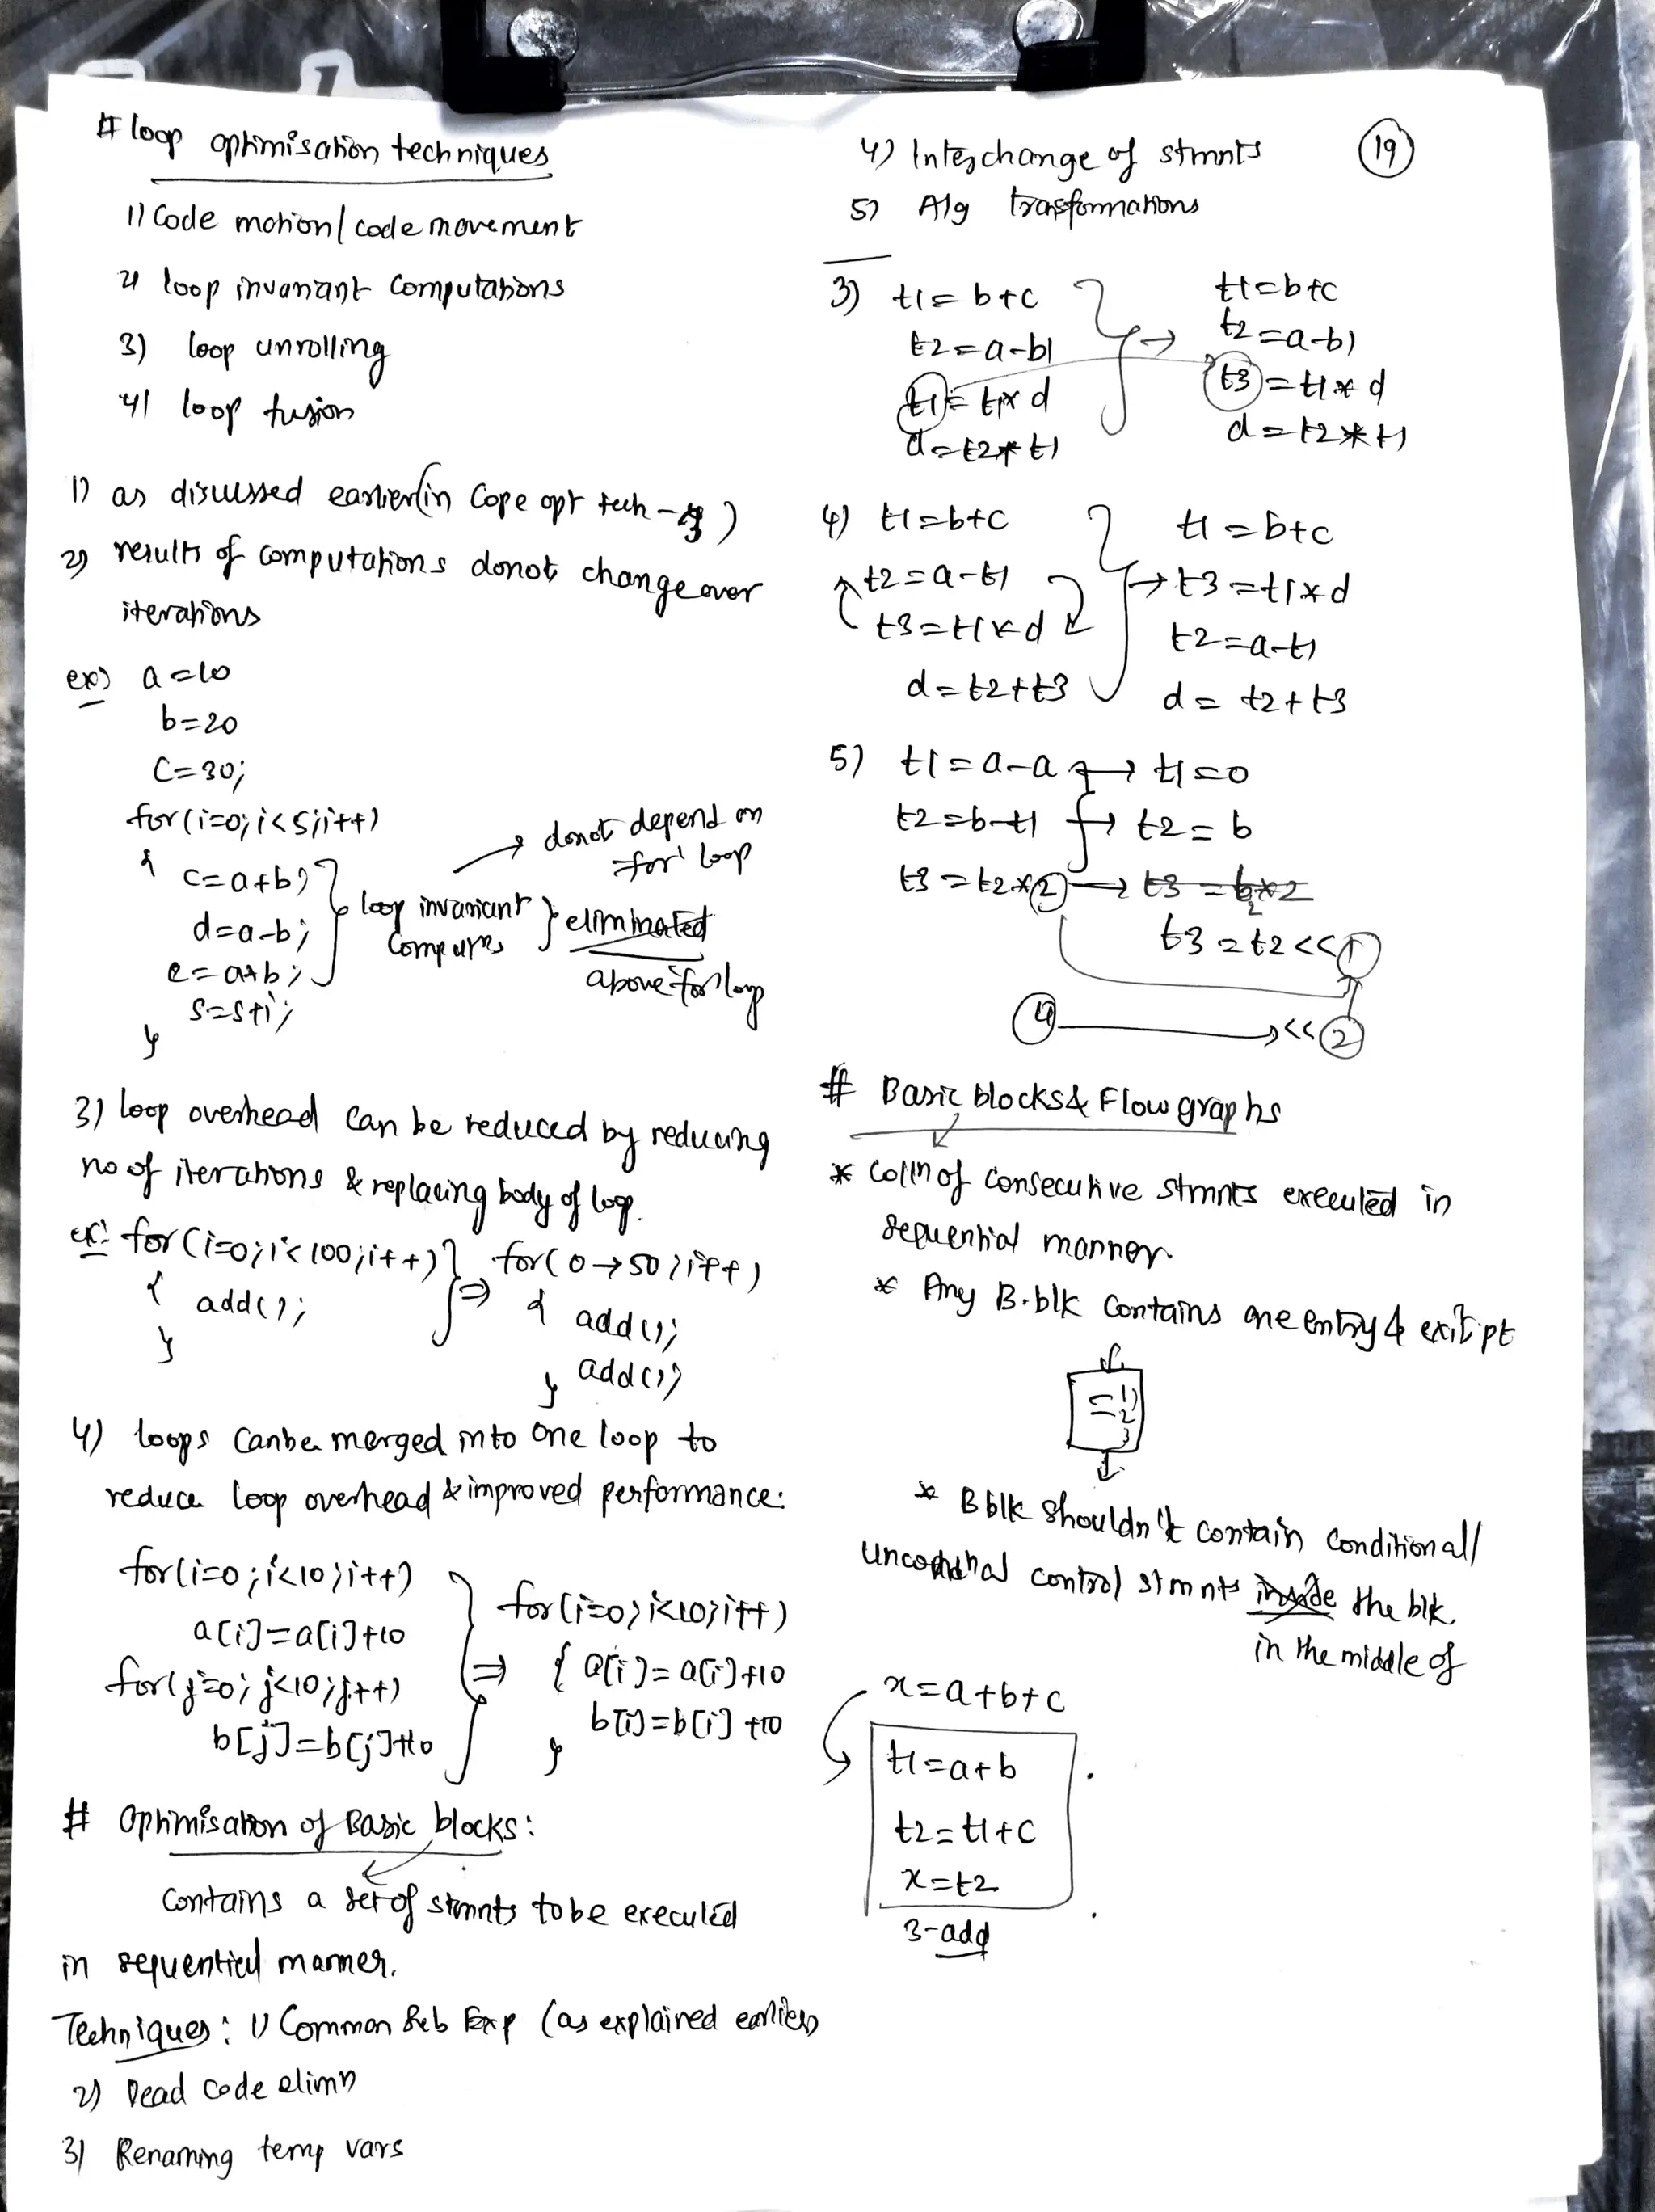 # loop optimisation techniques
1) Code motion / code movement
2) loop invariant computations
3) loop unrolling
4) loop fusion
1) as discussed earlier (in Cope opt tech - )
2) results of computations donot change over
iterations
ex) a=10
b=20
C=30;
for(i=0;i<5;i++)
{
c=a+b;
d=a-b;
e=a*b;
s=s+i;
}
loop invariant
Computns
eliminated
above 'for' loop
→ donot depend on
'for' loop
3) loop overhead can be reduced by reducing
no of iterations & replacing body of loop.
ex: for(i=0;i<100;i++)
{
add();
}
⇒
for(0→50;i++)
{
add();
add();
}
4) loops canbe merged into one loop to
reduce loop overhead & improved performance:
for(i=0;i<10;i++)
a[i]=a[i]+10
for(j=0;j<10;j++)
b[j]=b[j]+10
⇒
for(i=0;i<10;i++)
{ a[i]=a[i]+10
b[i]=b[i]+10
}
# Optimisation of Basic blocks:
contains a set of stmnts to be executed
in sequential manner.
Techniques: 1) Common Sub Exp (as explained earlier)
2) Dead code elimn
3) Renaming temp vars
19
4) Interchange of stmnts
5) Alg trasformations
3) t1=b+c
t2=a-b1
t1=t1*d
d=t2*t1
→
t1=b+c
t2=a-b1
t3=t1*d
d=t2*t1
4) t1=b+c
t2=a-t1
t3=t1*d
d=t2+t3
→
t1=b+c
t3=t1*d
t2=a-t1
d=t2+t3
5) t1=a-a → t1=0
t2=b-t1 → t2=b
t3=t2*2 → t3=b*2
t3=t2<<1
4 → <<2
# Basic blocks & Flow graphs
* Colln of consecutive stmnts executed in
sequential manner.
* Any B.blk contains one entry & exit pt
1)
2
3
* B blk shouldn't contain conditional/
control stmnts inside the blk
in the middle of
x=a+b+c
t1=a+b
t2=t1+c
x=t2
3-add